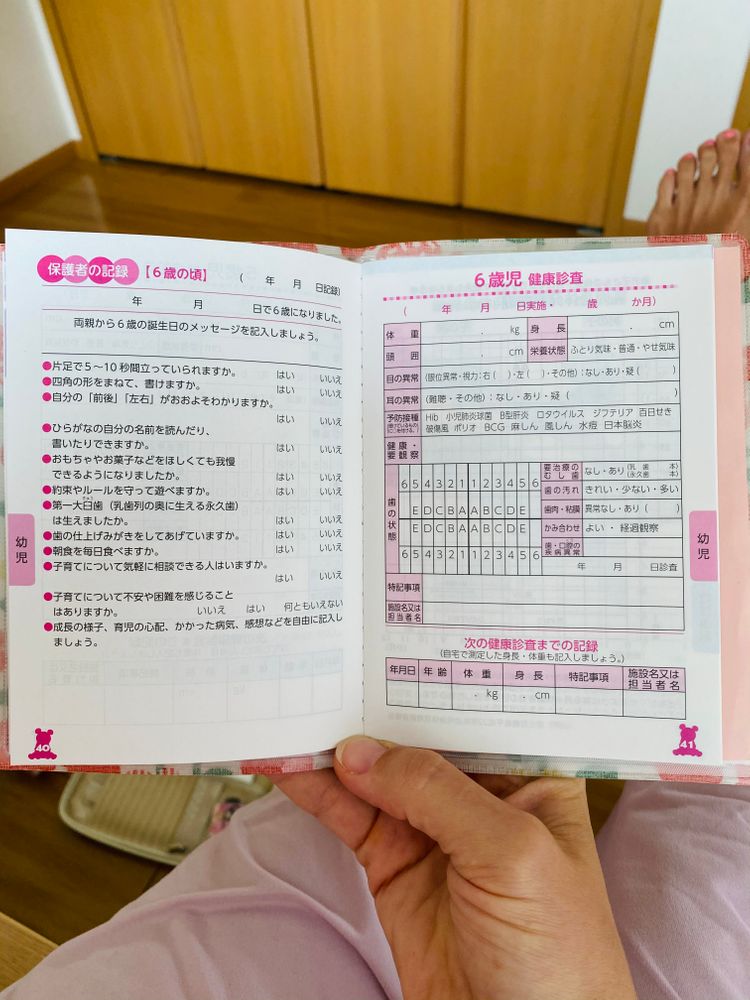 保護者の記録 【6歳の頃】 ( 年 月 日記録)
年 月 日で6歳になりました。
両親から6歳の誕生日のメッセージを記入しましょう。
●片足で5～10秒間立っていられますか。 はい いいえ
●四角の形をまねて、書けますか。 はい いいえ
●自分の「前後」「左右」がおおよそわかりますか。
はい いいえ
●ひらがなの自分の名前を読んだり、
書いたりできますか。 はい いいえ
●おもちゃやお菓子などをほしくても我慢
できるようになりましたか。 はい いいえ
●約束やルールを守って遊べますか。 はい いいえ
●第一大臼歯（乳歯列の奥に生える永久歯）
は生えましたか。 はい いいえ
●歯の仕上げみがきをしてあげていますか。 はい いいえ
●朝食を毎日食べますか。 はい いいえ
●子育てについて気軽に相談できる人はいますか。
はい いいえ
●子育てについて不安や困難を感じること
はありますか。 いいえ はい 何ともいえない
●成長の様子、育児の心配、かかった病気、感想などを自由に記入し
ましょう。
幼児
40
6歳児 健康診査
( 年 月 日実施・ 歳 か月)
体重 . kg 身長 . cm
頭囲 . cm 栄養状態 ふとり気味・普通・やせ気味
目の異常 (眼位異常・視力：右( )・左( )・その他)：なし・あり・疑( )
耳の異常 (難聴・その他)：なし・あり・疑( )
予防接種 Hib 小児肺炎球菌 B型肝炎 ロタウイルス ジフテリア 百日せき
破傷風 ポリオ BCG 麻しん 風しん 水痘 日本脳炎
健康・
要観察
歯の状態
6 5 4 3 2 1 1 2 3 4 5 6
E D C B A A B C D E
E D C B A A B C D E
6 5 4 3 2 1 1 2 3 4 5 6
要治療のむし歯 なし・あり(乳歯 本 永久歯 本)
歯の汚れ きれい・少ない・多い
歯肉・粘膜 異常なし・あり( )
かみ合わせ よい・経過観察
歯・口腔の疾病異常
年 月 日診査
特記事項
施設名又は
担当者名
次の健康診査までの記録
(自宅で測定した身長・体重も記入しましょう。)
年月日 年齢 体重 身長 特記事項 施設名又は担当者名
. kg . cm
幼児
41